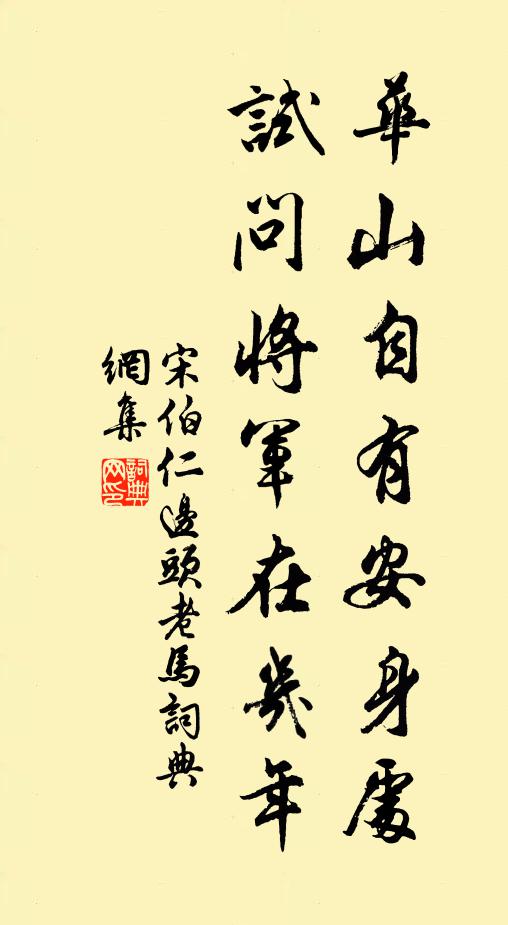 華山自有安身處
試問將軍在幾年
宋伯仁邊頭老馬詞典
網集
詞典網印